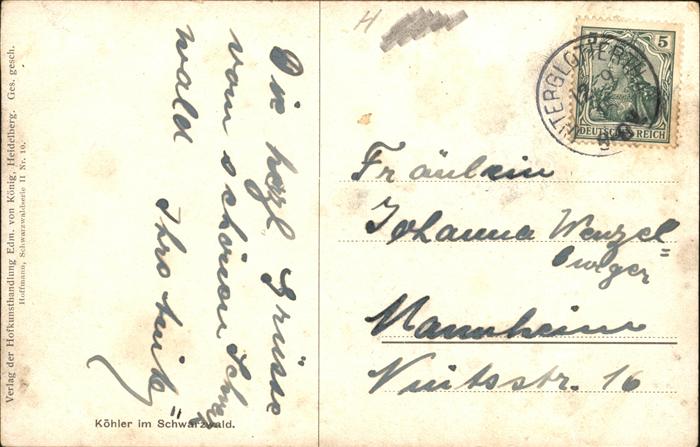 Verlag der Hofkunsthandlung Edm. von König, Heidelberg. Ges. gesch.
Hoffmann, Schwarzwaldserie II Nr. 10.
Die herzl Grüsse
vom schönen Schwarz
wald
Köhler im Schwarzwald.
H
5
DEUTSCHES REICH
Fräulein
Johanna Wenzel=
Mannheim
16